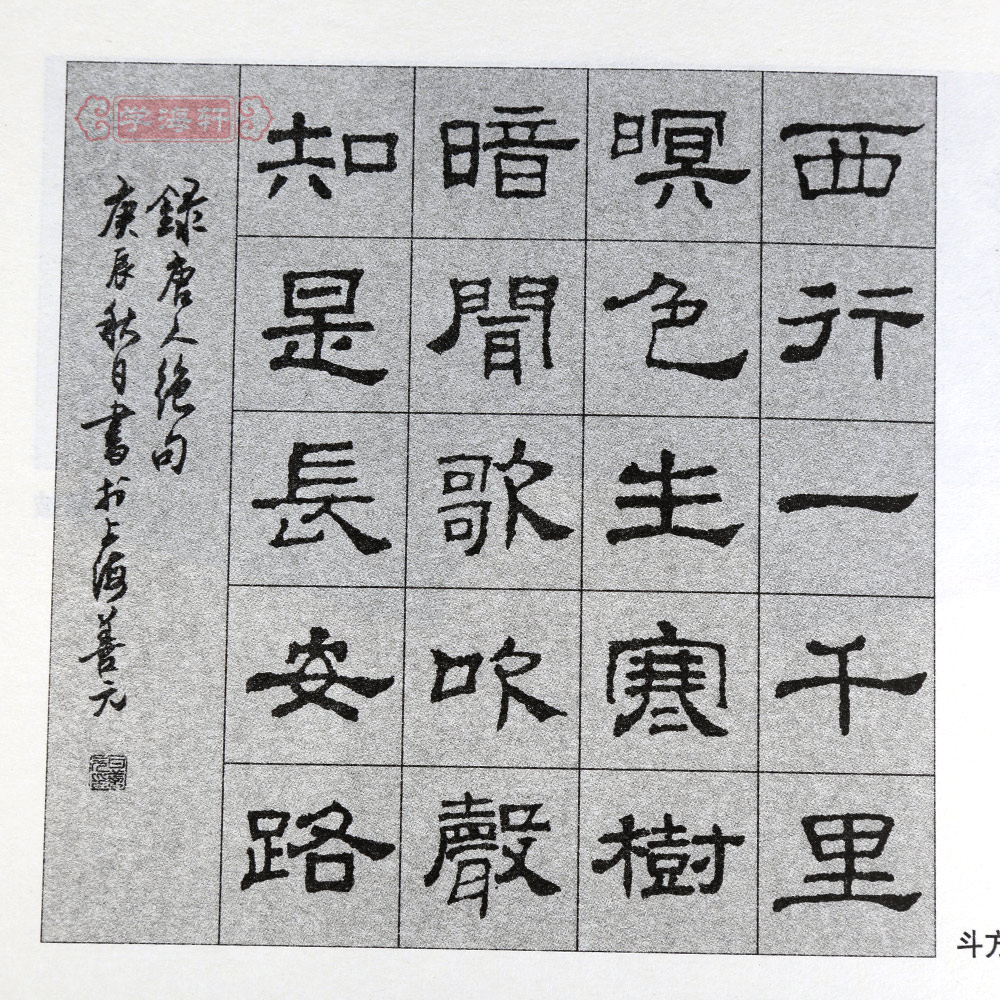 西行一千里
暝色生寒樹
暗聞歌吹聲
知是長安路
録唐人絶句
庚辰秋日書於上海善元
字海轩
斗方